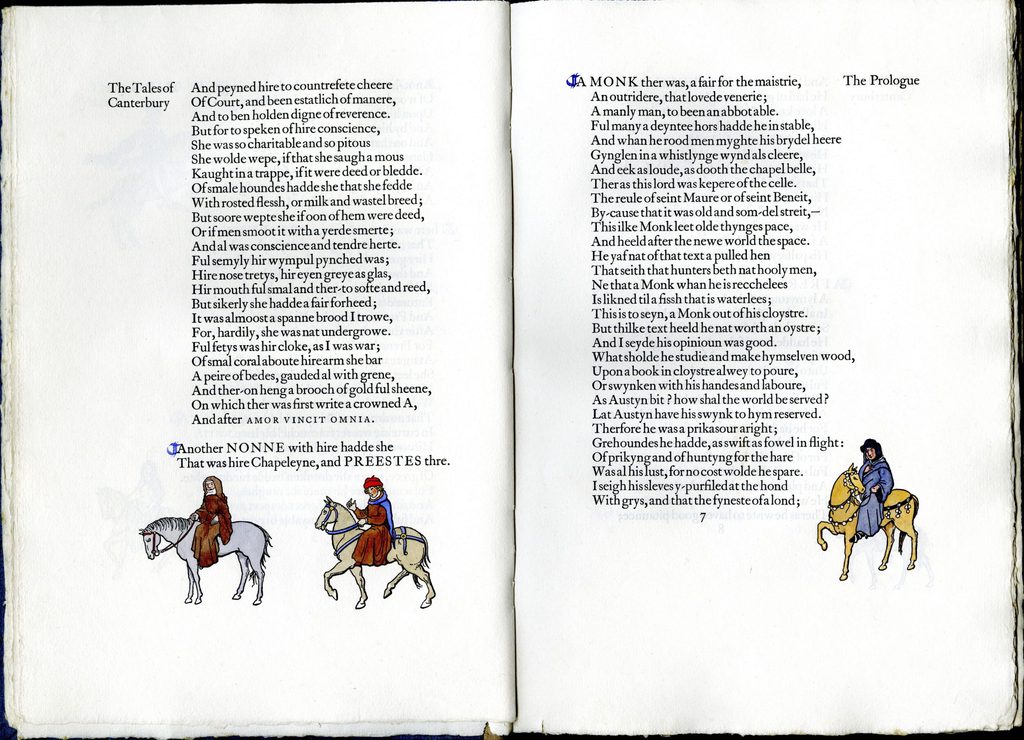 The Tales of
Canterbury
And peyned hire to countrefete cheere
Of Court, and been estatlich of manere,
And to ben holden digne of reverence.
But for to speken of hire conscience,
She was so charitable and so pitous
She wolde wepe, if that she saugh a mous
Kaught in a trappe, if it were deed or bledde.
Of smale houndes hadde she that she fedde
With rosted flessh, or milk and wastel breed;
But soore wepte she if oon of hem were deed,
Or if men smoot it with a yerde smerte;
And al was conscience and tendre herte.
Ful semyly hir wympul pynched was;
Hire nose tretys, hir eyen greye as glas,
Hir mouth ful smal and ther-to softe and reed,
But sikerly she hadde a fair forheed;
It was almoost a spanne brood I trowe,
For, hardily, she was nat undergrowe.
Ful fetys was hir cloke, as I was war;
Of smal coral aboute hire arm she bar
A peire of bedes, gauded al with grene,
And ther-on heng a brooch of gold ful sheene,
On which ther was first write a crowned A,
And after AMOR VINCIT OMNIA.
Another NONNE with hire hadde she
That was hire Chapeleyne, and PREESTES thre.
The Prologue
A MONK ther was, a fair for the maistrie,
An outridere, that lovede venerie;
A manly man, to been an abbot able.
Ful many a deyntee hors hadde he in stable,
And whan he rood men myghte his brydel heere
Gynglen in a whistlynge wynd als cleere,
And eek as loude, as dooth the chapel belle,
Ther as this lord was kepere of the celle.
The reule of seint Maure or of seint Beneit,
By-cause that it was old and som-del streit,—
This ilke Monk leet olde thynges pace,
And heeld after the newe world the space.
He yaf nat of that text a pulled hen
That seith that hunters beth nat hooly men,
Ne that a Monk whan he is recchelees
Is likned til a fissh that is waterlees;
This is to seyn, a Monk out of his cloystre.
But thilke text heeld he nat worth an oystre;
And I seyde his opinioun was good.
What sholde he studie and make hymselven wood,
Upon a book in cloystre alwey to poure,
Or swynken with his handes and laboure,
As Austyn bit? how shal the world be served?
Lat Austyn have his swynk to hym reserved.
Therfore he was a prikasour aright;
Grehoundes he hadde, as swift as fowel in flight:
Of prikyng and of huntyng for the hare
Was al his lust, for no cost wolde he spare.
I seigh his sleves y-purfiled at the hond
With grys, and that the fyneste of a lond;
7